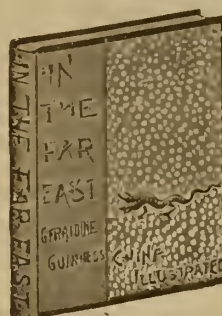 IN THE FAR EAST
IN
THE
FAR
EAST
GERALDINE
GUINNESS
CHINA
ILLUSTRATED